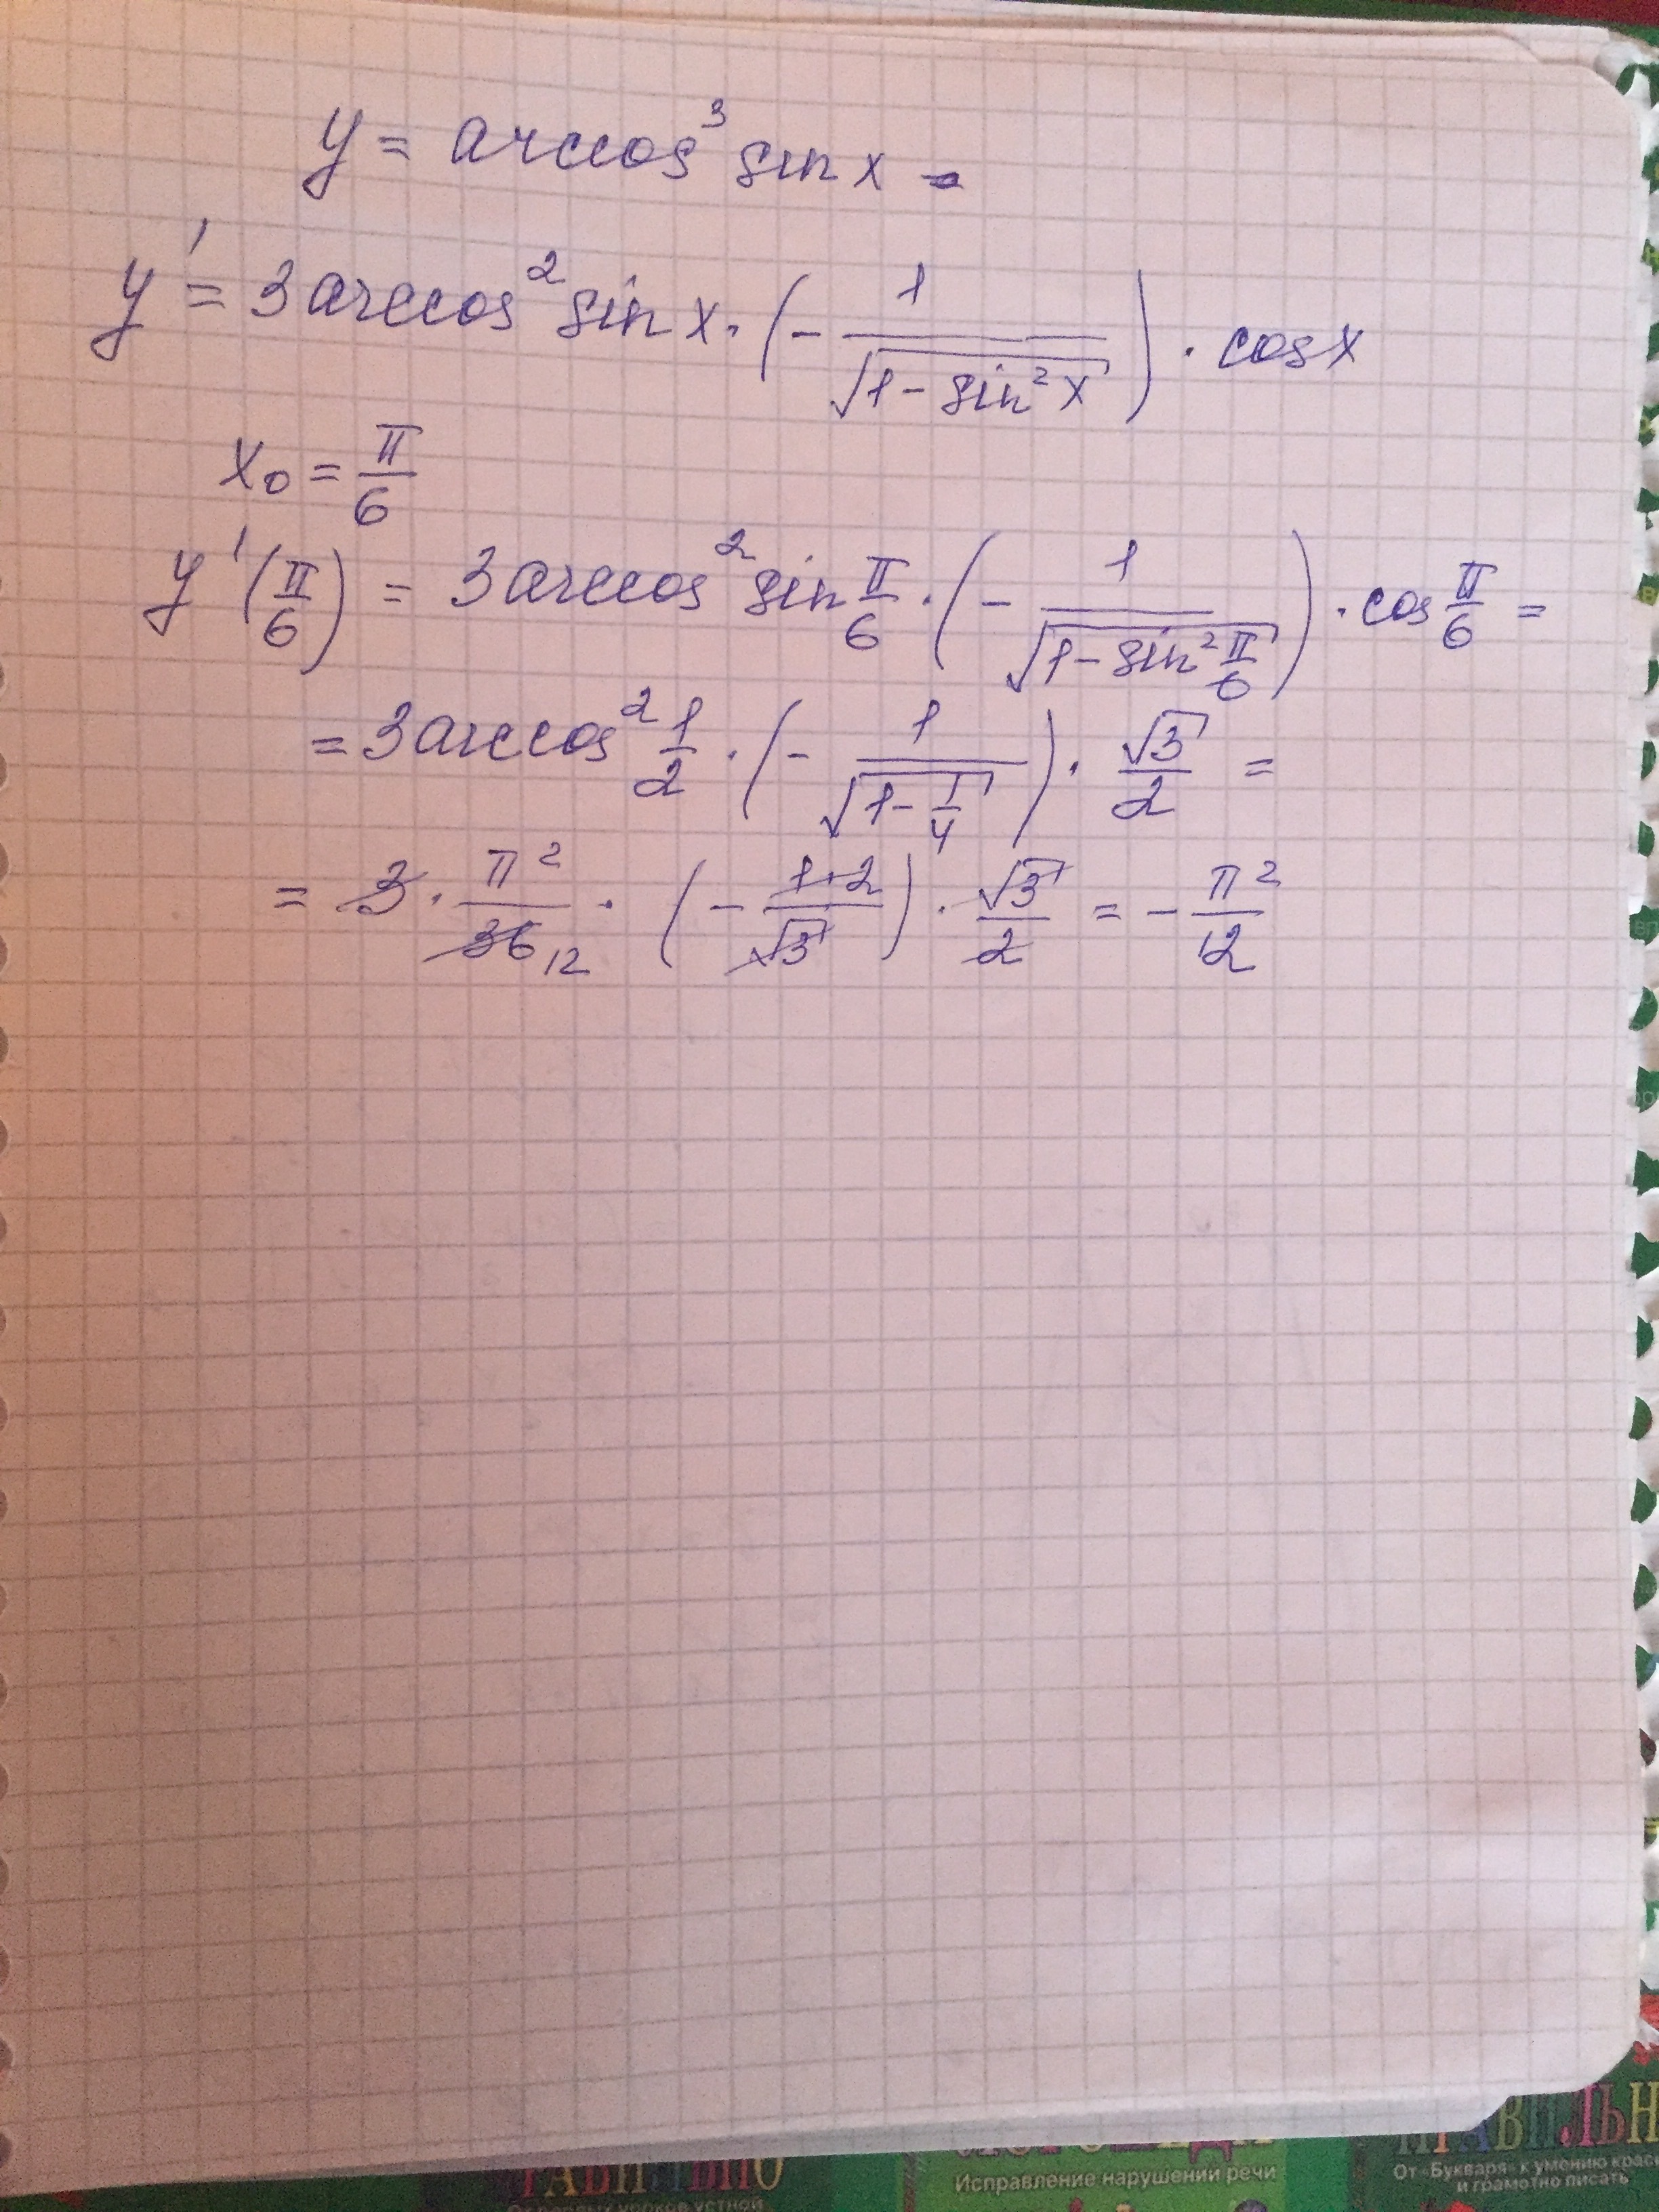 y = arccos³ sin x
y' = 3 arccos² sin x · (- 1/√(1 - sin² x)) · cos x
x₀ = π/6
y'(π/6) = 3 arccos² sin π/6 · (- 1/√(1 - sin² π/6)) · cos π/6 =
= 3 arccos² 1/2 · (- 1/√(1 - 1/4)) · √3/2 =
= 3 · π²/36 12 · (- 1·2/√3) · √3/2 = - π²/12
Исправление нарушений речи
От «Букваря» к умению
и грамотно писать